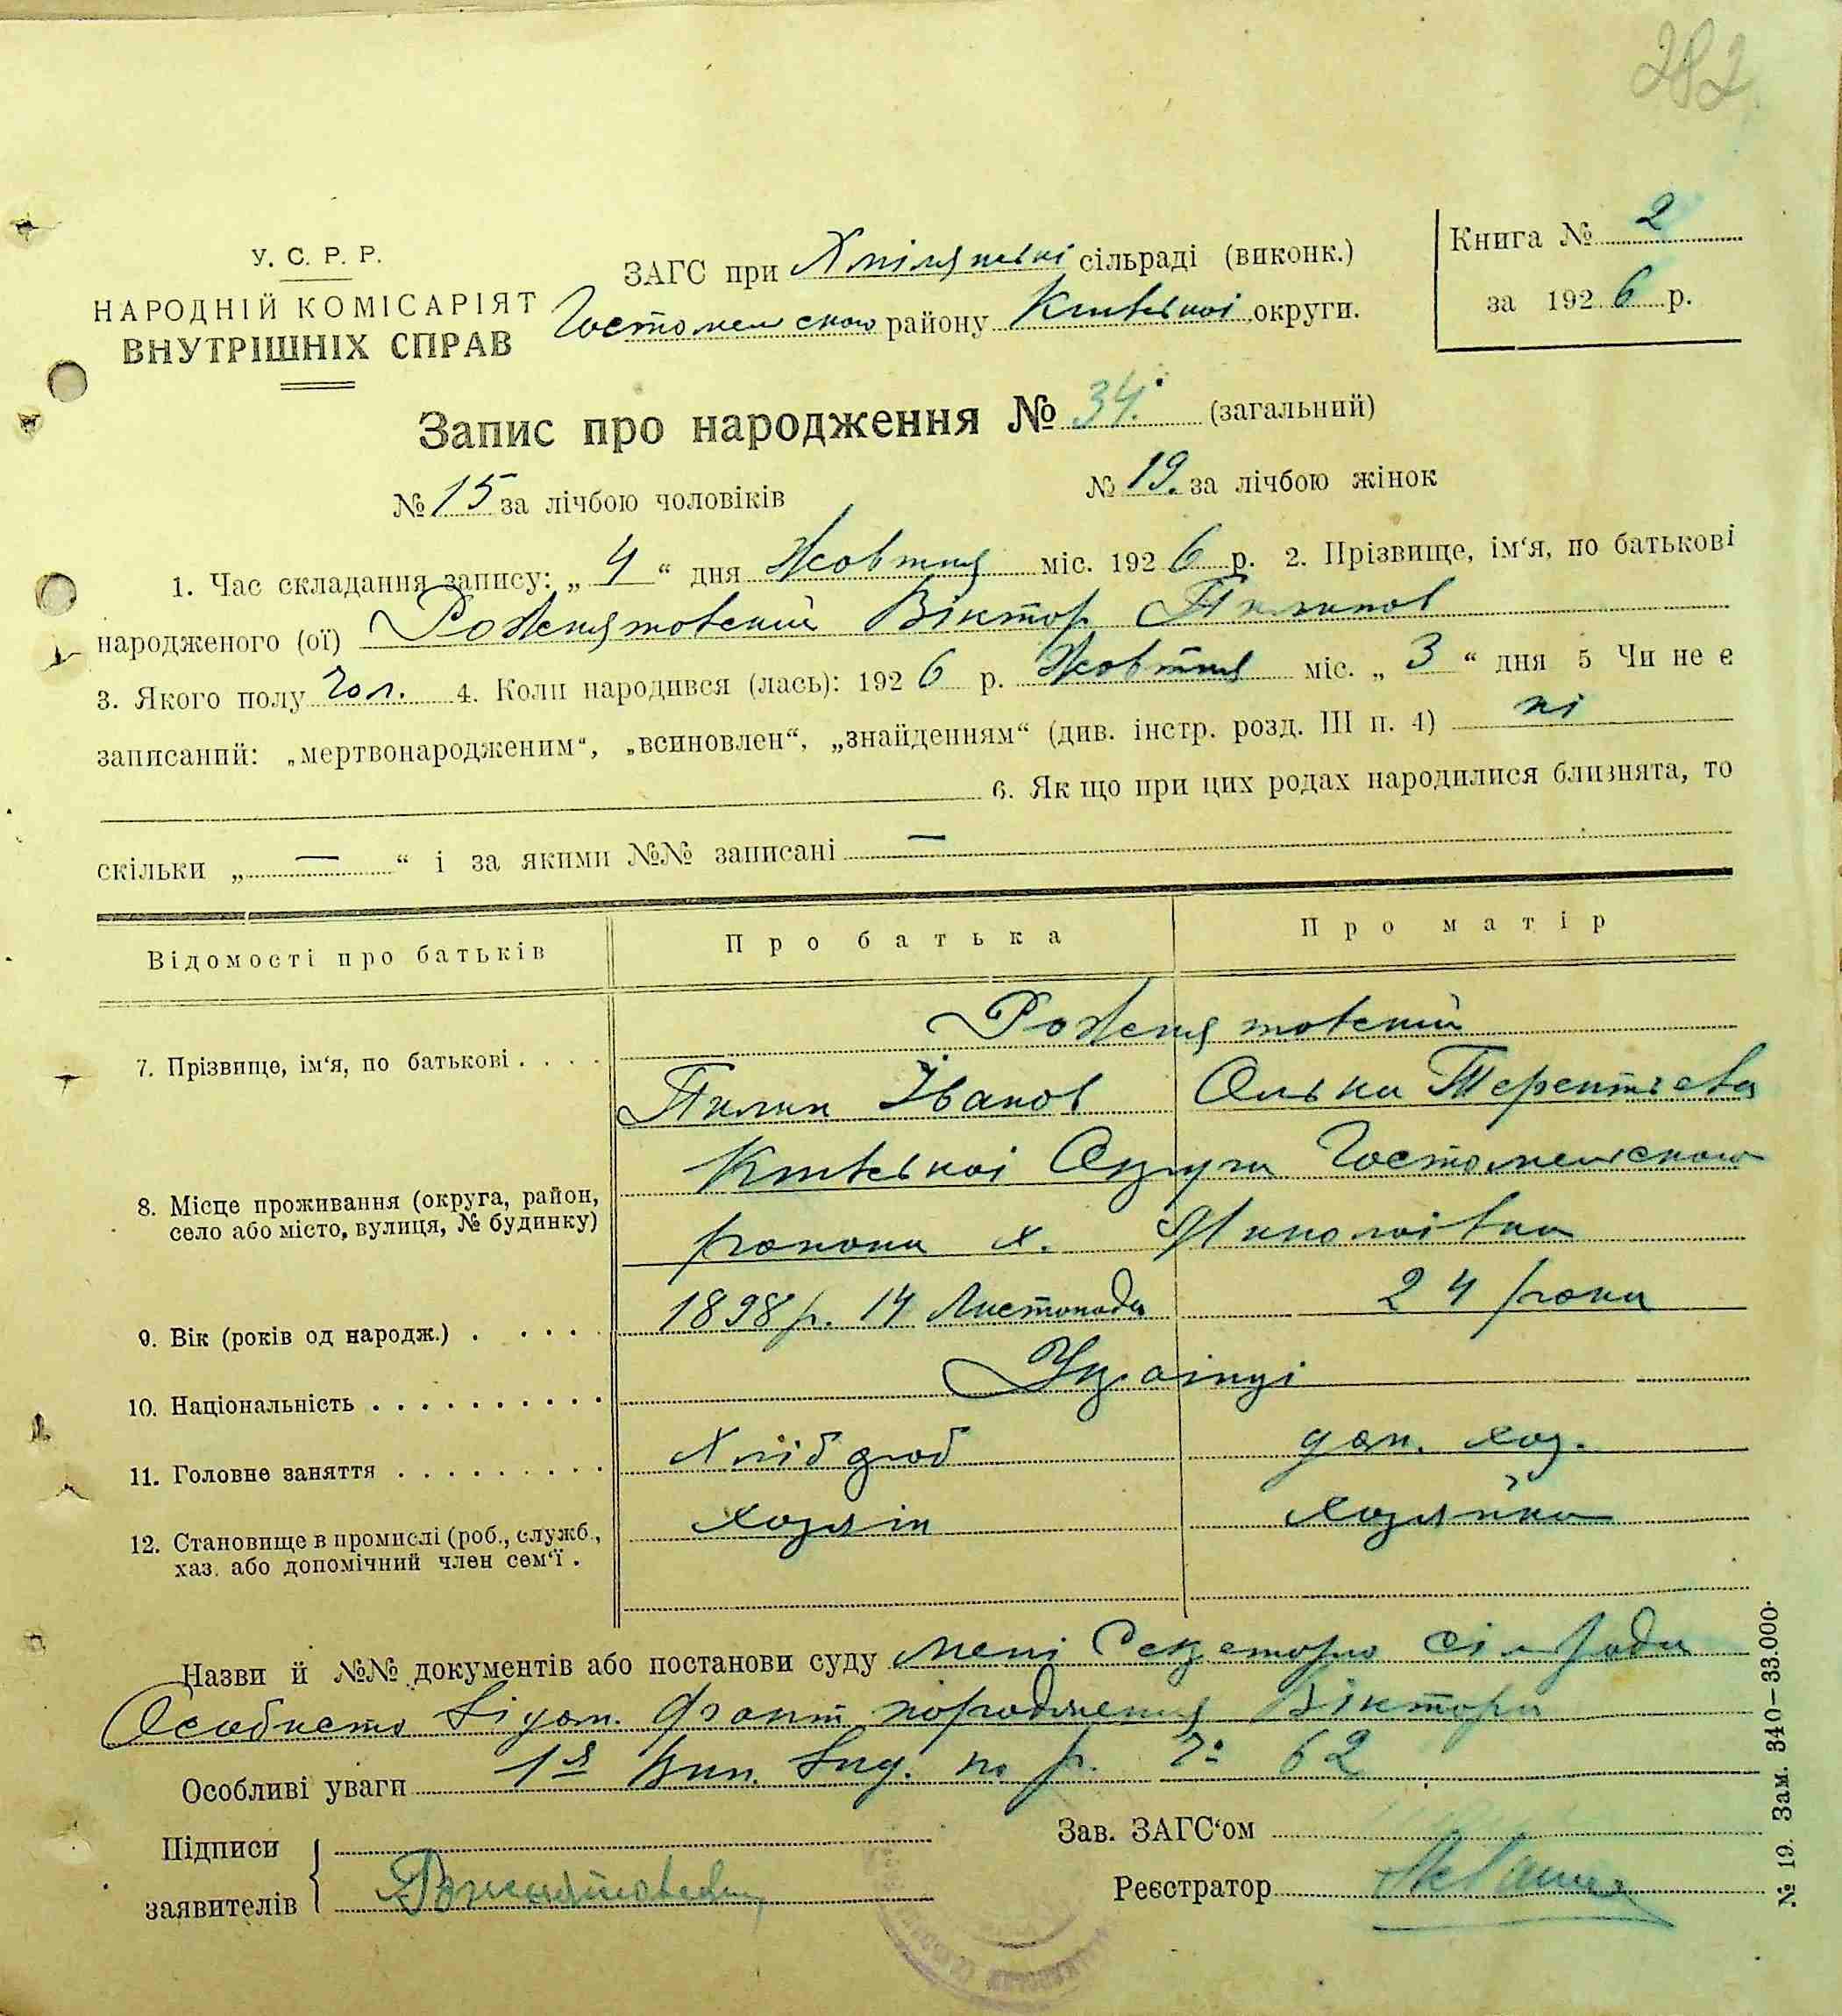 282
У. С. Р. Р.
НАРОДНІЙ КОМІСАРІЯТ
ВНУТРІШНІХ СПРАВ
ЗАГС при Хмілянські сільраді (виконк.)
Гостомельского району Київської округи.
Книга № 2
за 1926 р.
Запис про народження № 34. (загальний)
№ 15 за лічбою чоловіків № 19. за лічбою жінок
1. Час складання запису: „ 4 “ дня Жовтня міс. 1926 р. 2. Прізвище, ім‘я, по батькові
народженого (ої) Рожнятовский Віктор Пилипов
3. Якого полу Чол. 4. Коли народився (лась): 1926 р. Жовтня міс. „ 3 “ дня 5 Чи не є
записаний: „мертвонародженим“, „всиновлен“, „знайденням“ (див. інстр. розд. III п. 4) ні
6. Як що при цих родах народилися близнята, то
скільки „ — “ і за якими №№ записані —
Відомості про батьків Про батька Про матір
Рожнятовский
7. Прізвище, ім‘я, по батькові . . . .
Пилип Іванов Ольга Терентієва
8. Місце проживання (округа, район, село або місто, вулиця, № будинку)
Київської Округи Гостомельского
района х.
9. Вік (років од народж.) . . . . . 1898 р. 14 Листопада 24 роки
10. Національність . . . . . . . . . . Українці
11. Головне заняття . . . . . . . . . Хлібороб дом. хоз.
12. Становище в промислі (роб., служб., хаз. або допомічний член сем‘ї . хозяїн хозяйка
Назви й №№ документів або постанови суду Мені Секретарю сільради
Особисто відом. факт народження Віктора
Особливі уваги 1й вип. вид. по р. 62
Підписи
заявителів Рожнятовский
Зав. ЗАГС‘ом
Реєстратор
№ 19. Зам. 340—33.000.